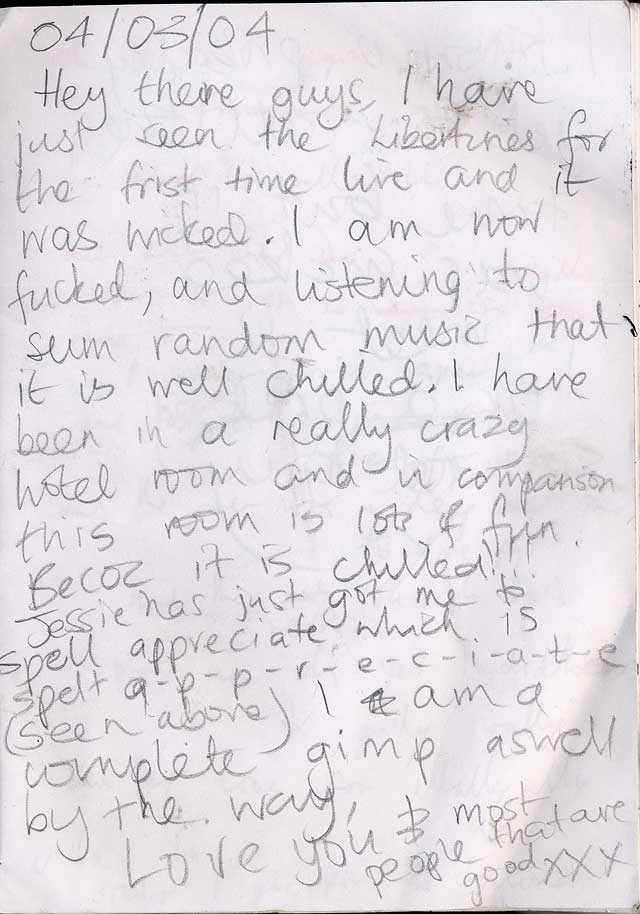 04/03/04
Hey there guys, I have
just seen the Libertines for
the frist time live and it
was wicked. I am now
fucked, and listening to
sum random music that
it is well chilled. I have
been in a really crazy
hotel room and in comparison
this room is lots of
Becoz it is chilled!!!
Jessie has just got me to
spell appreciate which is
spelt a-p-p-r-e-c-i-a-t-e
(seen above) I am a
complete gimp aswell
by the way,
Love you & most
people that are
good XXX